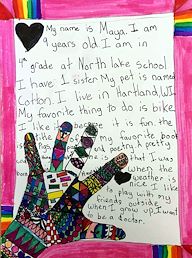 My name is Maya. I am
9 years old I am in
4th grade at North lake School
I have 1 sister My pet is named
Cotton. I live in Hartland, WI.
My favorite thing to do is bike.
I like because it is fun the
my favorite book
and poetry. A pretty
is that I was
when the
weather is
nice I like
to play with my
friends outside
when I grow up I want
to be a doctor.